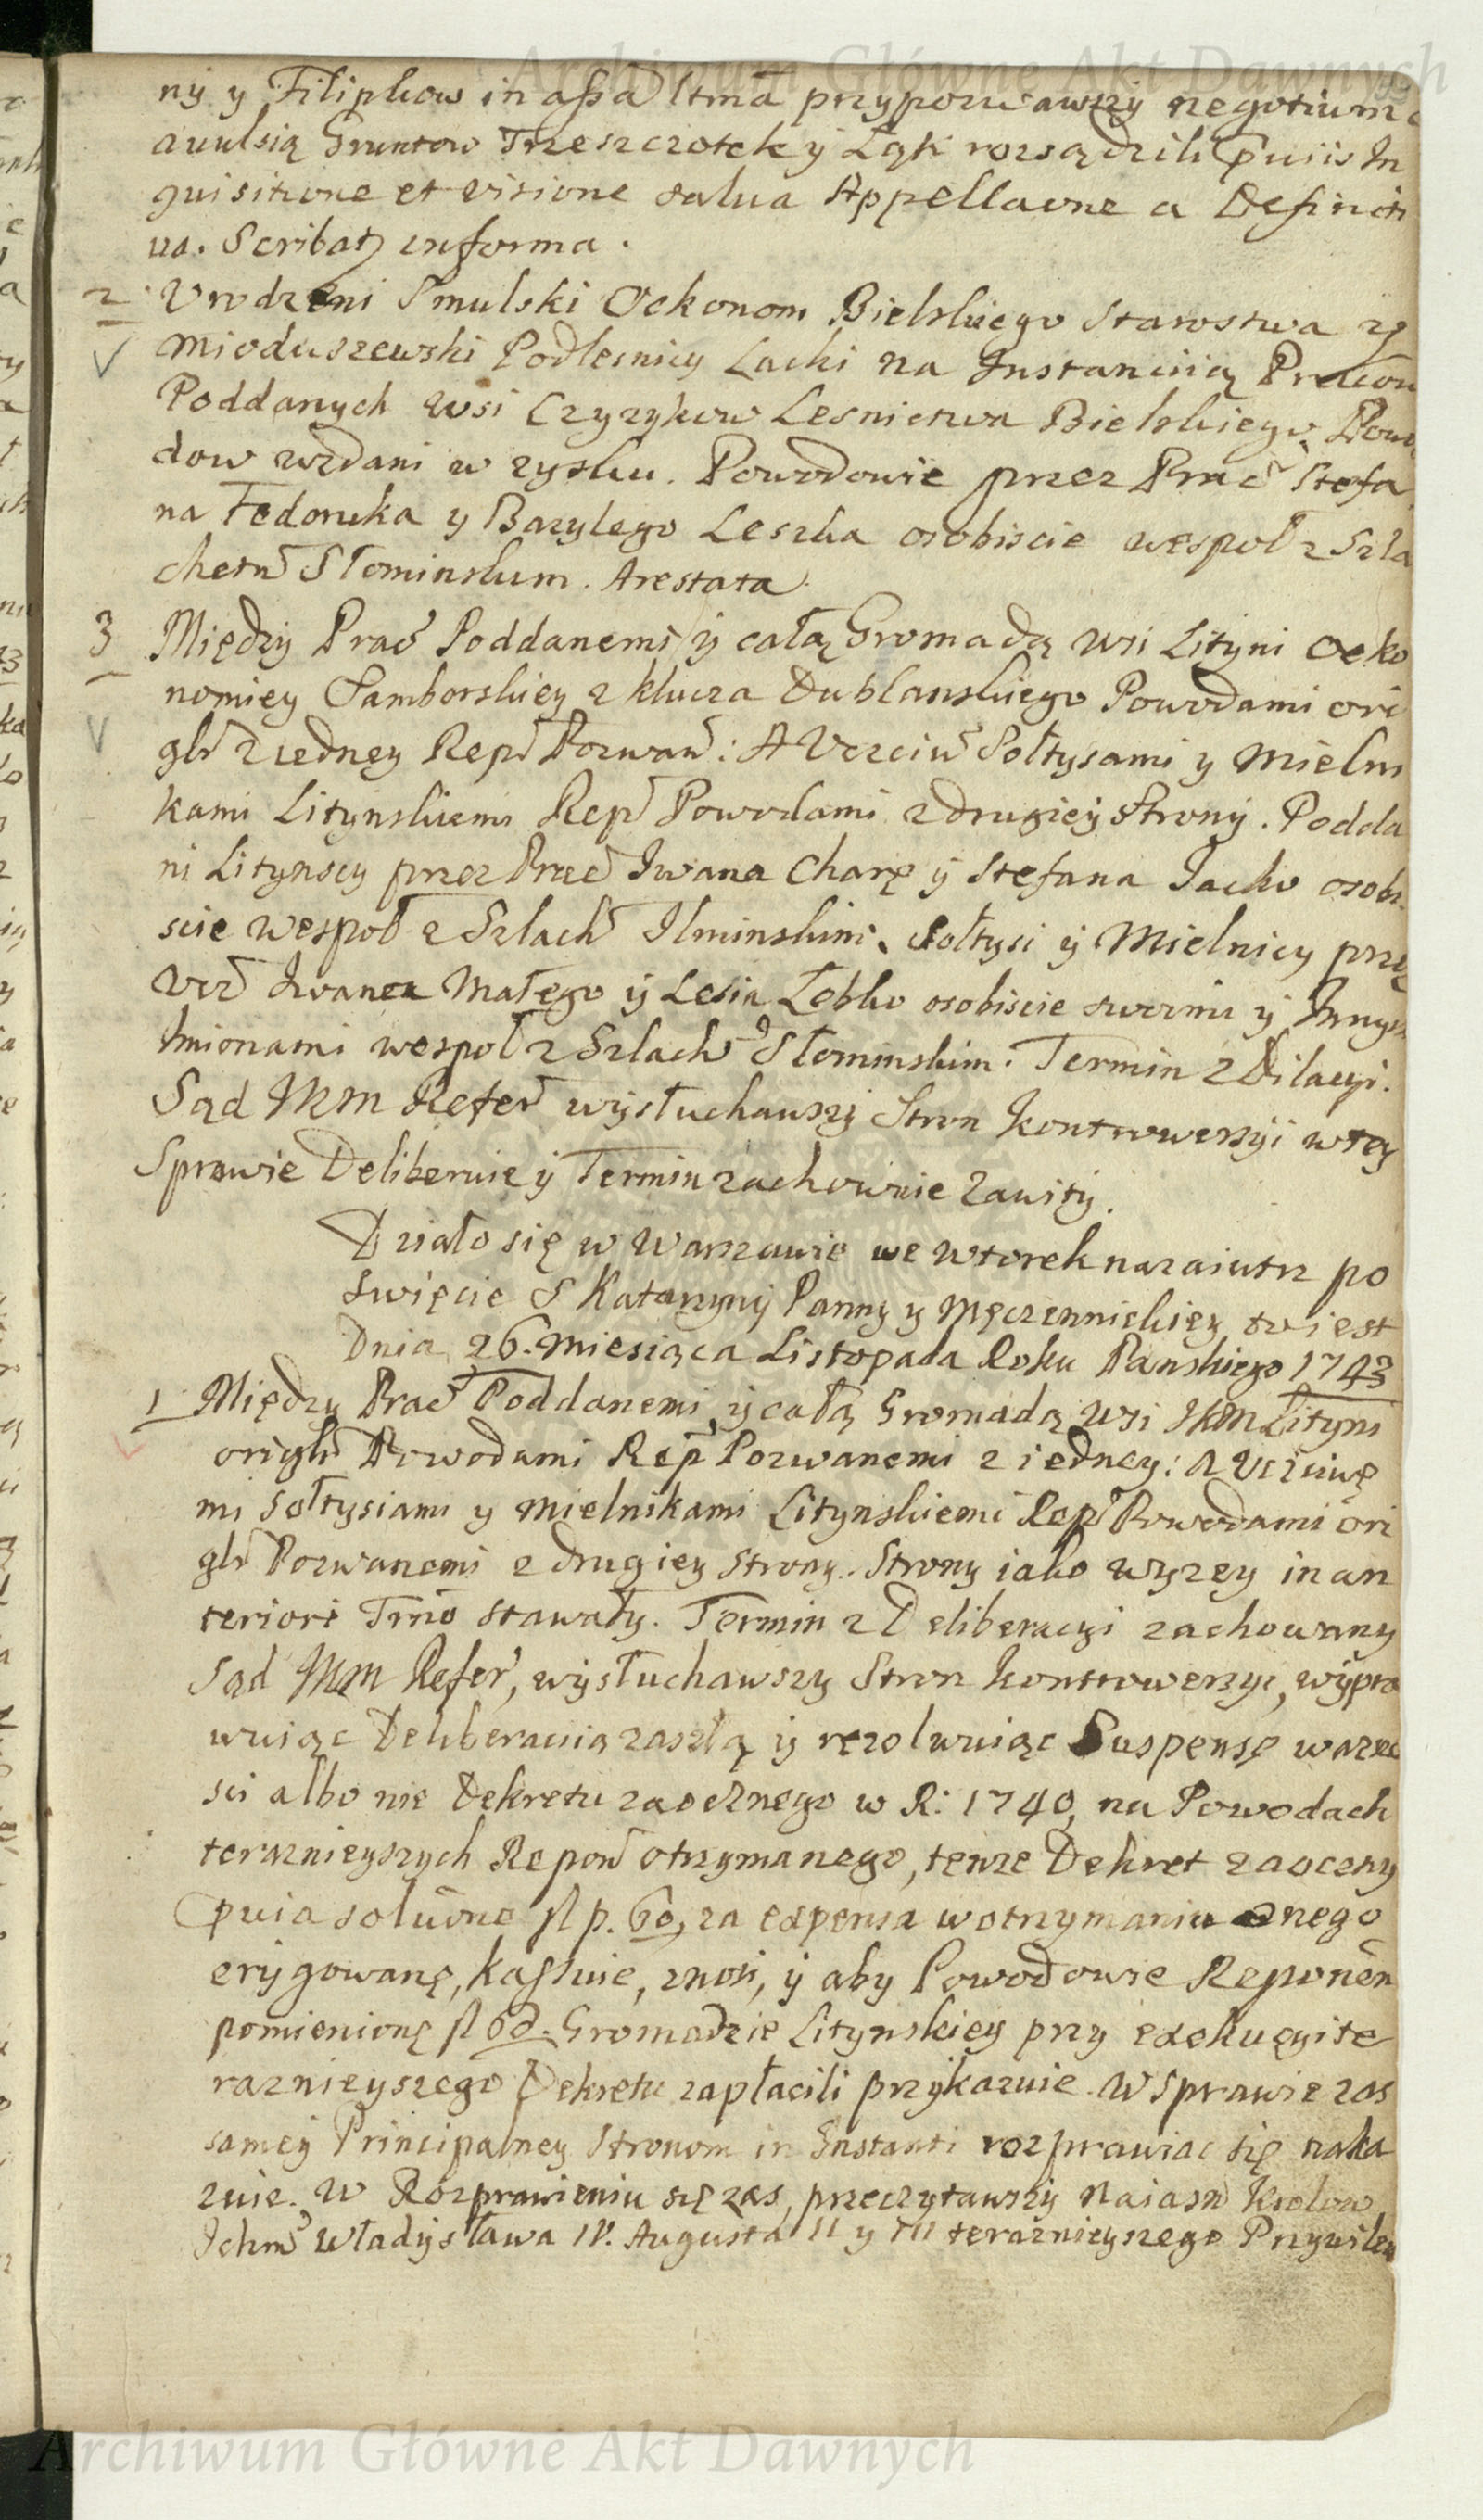 Archiwum Główne Akt Dawnych
ny y Filipkow in assa ltmã przypozwawszy negotium
avulsią Gruntow Trzeszczotek y Ląk rozsądzili puiis In
quisitione et visione salva Appellaone a Definiti
va. Scribatz informa.
2 Vrodzeni Smulski Oekonom Bielskiego Starostwa zg
Mioduszewski Podlesniczy Lacki na Instancyią Pracow
Poddanych wsi Czyzykow Lesnictwa Bielskiego, Powo
dow wzdani w zysku. Powodowie przez Prac Stefa
na Fedoruka y Bazylego Leszka osobiscie wespoł z Szla
chetn Słominskim. Arestata.
3 Między Prac Poddanemi y całą Gromadą wsi Lityni Oeko
nomiey Samborskiey z klucza Dublanskiego Powodami ori
glr z iedney Rep Pozwan: A Vcciw Sołtysami y Mielni
kami Litynskiemi Rep Powodami z drugiey Strony. Podda
ni Litynscy przez Prac Iwana Charę y Stefana Jacko osobi
scie wespoł z Szlach Ilminskim. Sołtysi y Mielnicy prze
Vcz Iwana Małego y Lesia Lebko osobiscie swoimi y Innych
Imionami wespoł z Szlach Słominskim. Termin z Dilacyi.
Sąd JKM Refer wysłuchawszy Stron kontrowersyi w tey
Sprawie Deliberuie y Termin zachowuie Zawity.
Działo się w Warszawie we Wtorek nazaiutrz po
Swięcie S Katarzyny Panny y Męczennickiey to iest
Dnia 26. Miesiąca Listopada Roku Panskiego 1743
1 Między Prac Poddanemi y całą Gromadą wsi JKM Lityni
origlr Powodami Rep Pozwanemi z iedney: A Vcciwe
mi Sołtysiami y Mielnikami Litynskiemi Rep Powodami ori
glr Pozwanemi z drugiey Strony. Strony iako wyzey in an
teriori Trno stawały. Termin z Deliberacyi zachowany
Sąd JKM Refer, wysłuchawszy Stron kontrowersyi, wypra
wuiąc Deliberacyią zaszłą y rezolwuiąc Suspensę wazno
sci albo nie Dekretu zaocznego w R: 1740, na Powodach
teraznieyszych Repow otrzymanego, tenze Dekret zaoczny
pvia soluõne fl p. 60, za expensa w otrzymaniu onego
erygowanę, kassuie, znosi, y aby Powodowie Reponen
pomienionę fl 60. Gromadzie Litynskiey przy exekucyi te
raznieyszego Dekretu zapłacili przykazuie. W Sprawie zas
samey Principalney Stronom in Instanti rozprawiac się naka
zuie. W Rozprawieniu się zas, przeczytawszy Naiasn Krolow
Ichm Władysława IV. Augusta II y III teraznieyszego Przywilei
Archiwum Główne Akt Dawnych